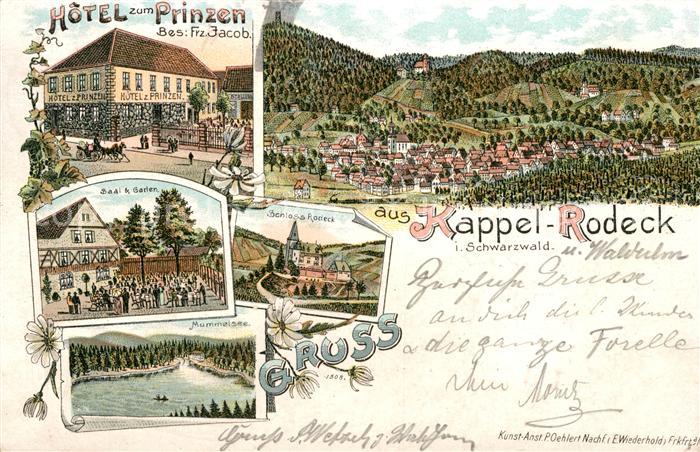 HÔTEL zum Prinzen
Bes: Frz. Jacob.
HÔTEL Z. PRINZEN
HÔTEL Z. PRINZEN.
Saal & Garten.
Schloss Rodeck
Mummelsee.
GRUSS
aus Kappel-Rodeck
i. Schwarzwald.
u. Waldulm
Herzliche Grüsse
an dich die l. Kinder
u die ganze Forelle
Moritz
1808.
Gruss
Kunst-Anst. P. Oehlert Nachf. (E. Wiederhold) Frkfrt